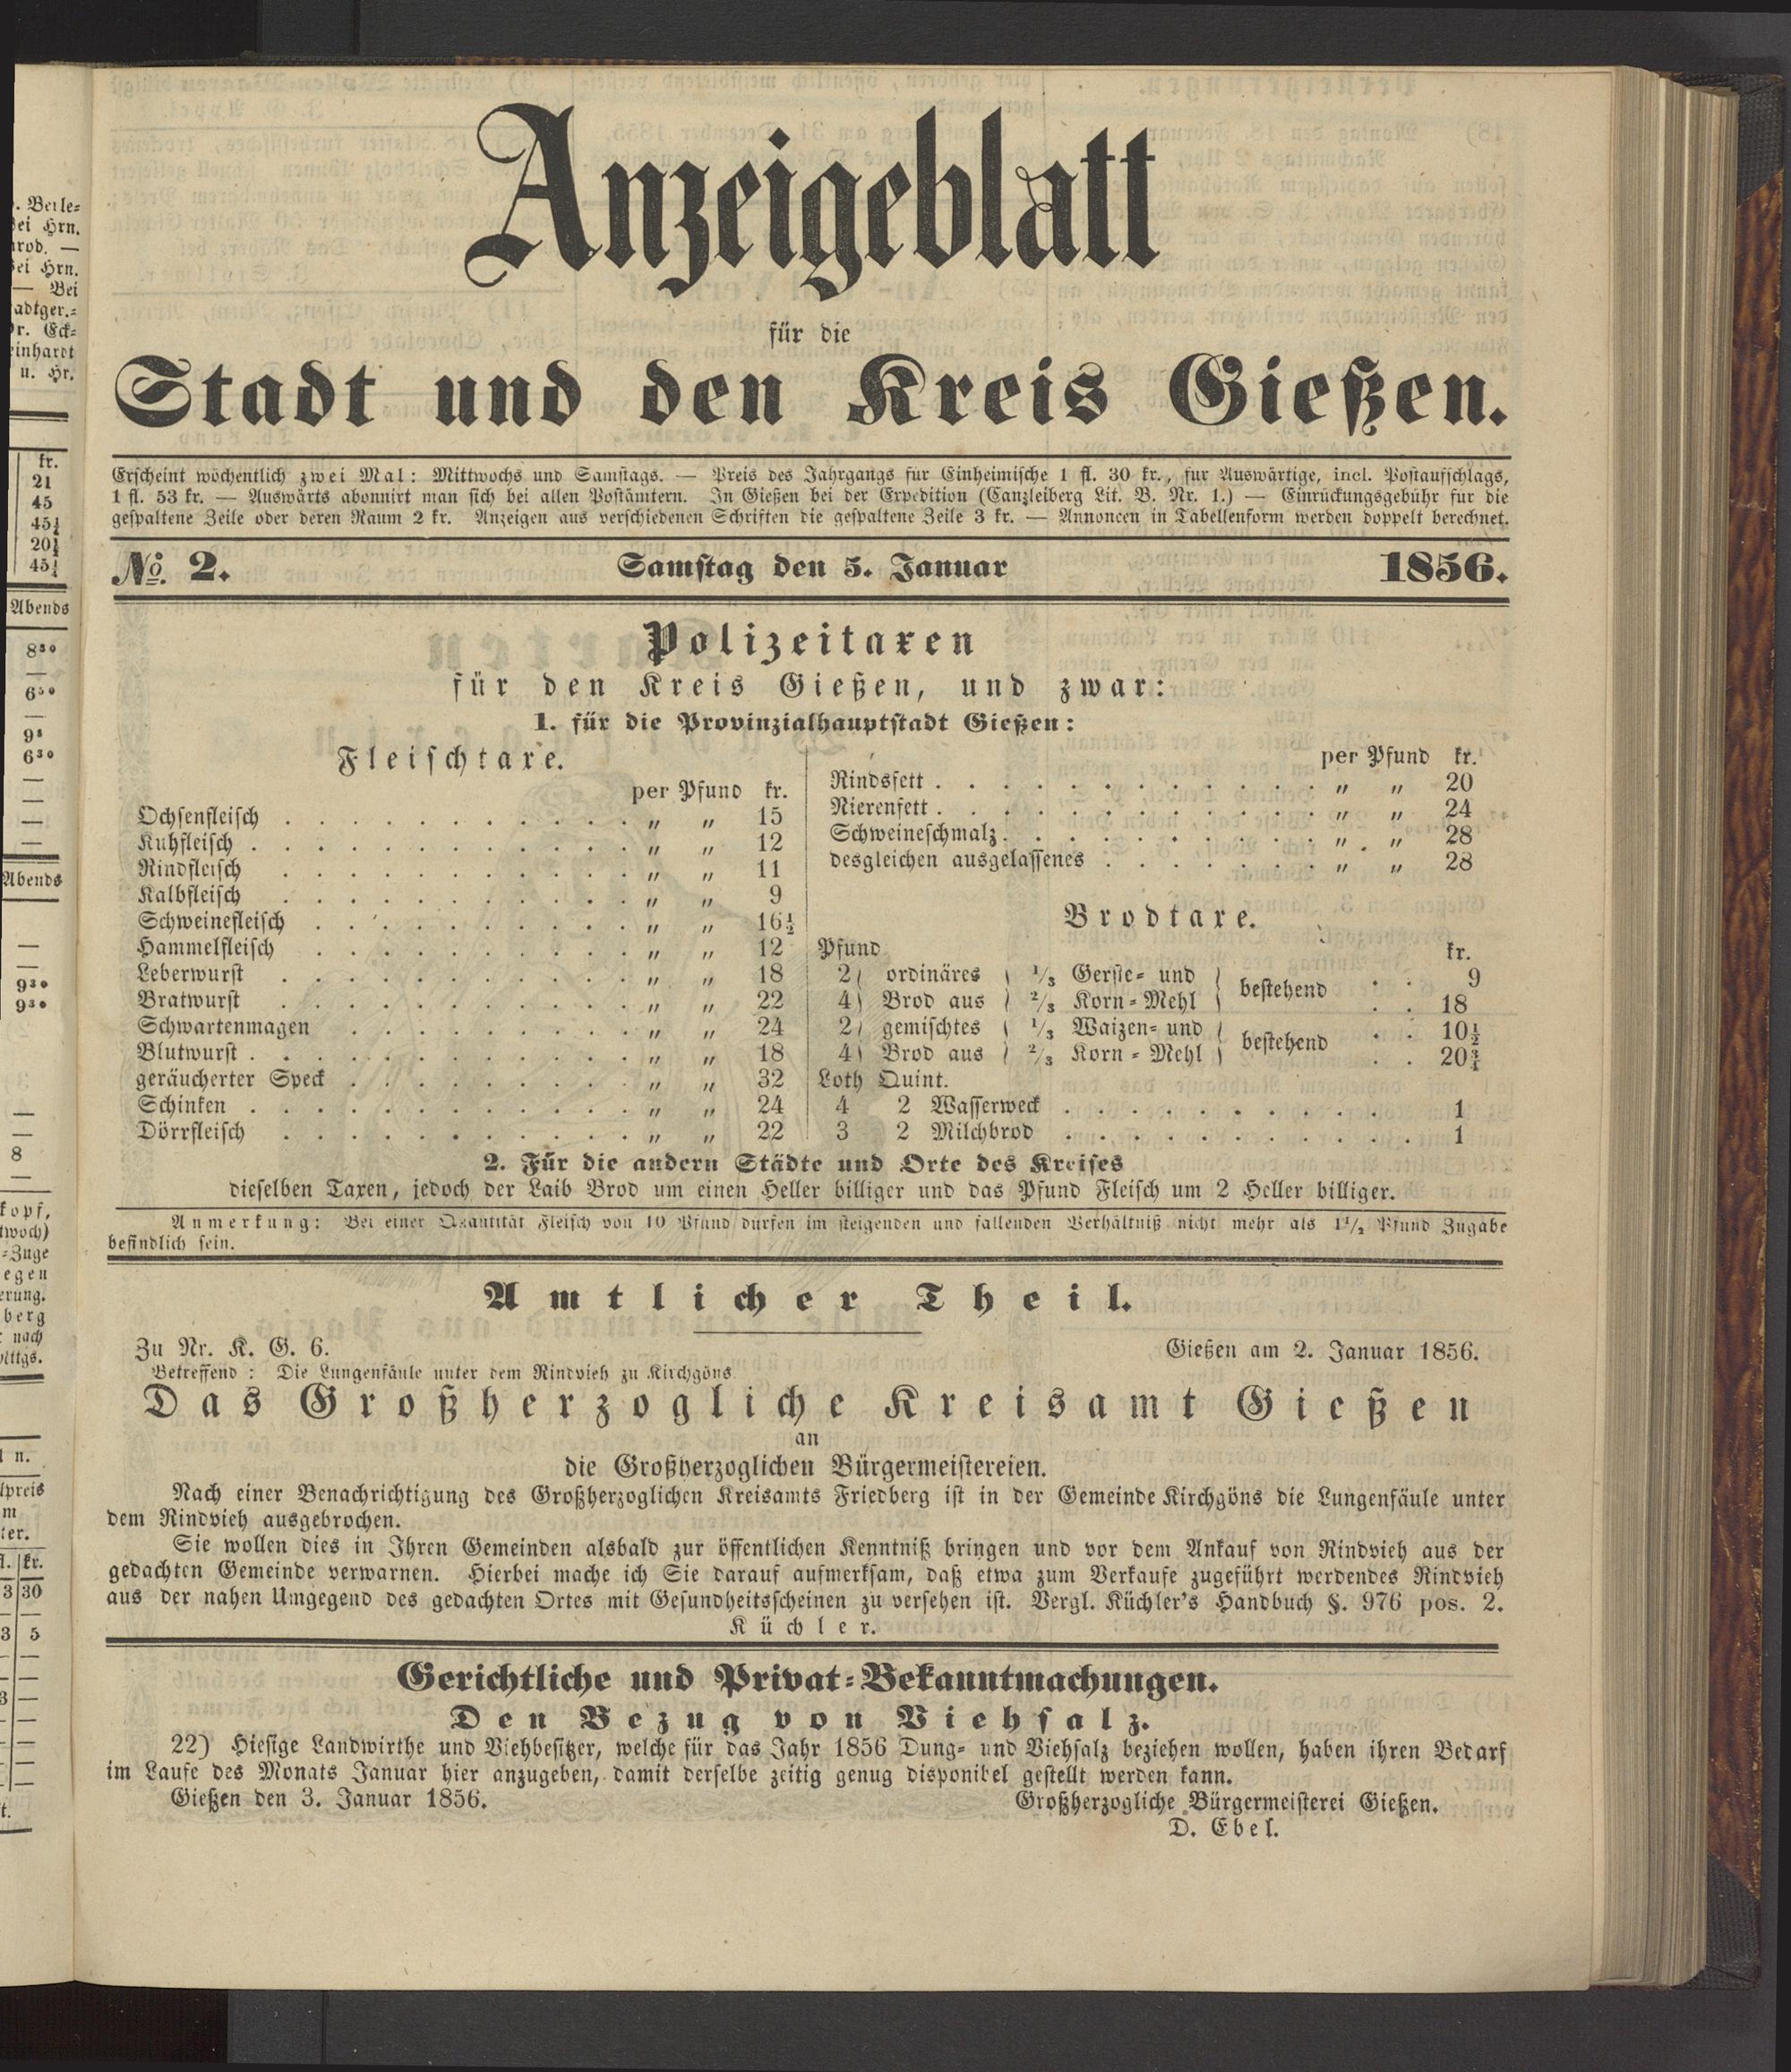 Anzeigeblatt
für die
Stadt und den Kreis Gießen.
Erscheint wöchentlich zwei Mal: Mittwochs und Samstags. — Preis des Jahrgangs für Einheimische 1 fl. 30 kr., für Auswärtige, incl. Postaufschlags,
1 fl. 53 kr. — Auswärts abonnirt man sich bei allen Postämtern. In Gießen bei der Expedition (Canzleiberg Lit. B. Nr. 1.) — Einrückungsgebühr für die
gespaltene Zeile oder deren Raum 2 kr. Anzeigen aus verschiedenen Schriften die gespaltene Zeile 3 kr. — Annoncen in Tabellenform werden doppelt berechnet.
No. 2. Samstag den 5. Januar 1856.
Polizeitaxen
für den Kreis Gießen, und zwar:
1. für die Provinzialhauptstadt Gießen:
Fleischtaxe.
per Pfund kr.
Ochsenfleisch . . . . . . . . . . . „ „ 15
Kuhfleisch . . . . . . . . . . . . „ „ 12
Rindfleisch . . . . . . . . . . . „ „ 11
Kalbfleisch . . . . . . . . . . . „ „ 9
Schweinefleisch . . . . . . . . . . „ „ 16½
Hammelfleisch . . . . . . . . . . „ „ 12
Leberwurst . . . . . . . . . . . „ „ 18
Bratwurst . . . . . . . . . . . „ „ 22
Schwartenmagen . . . . . . . . . „ „ 24
Blutwurst . . . . . . . . . . . . „ „ 18
geräucherter Speck . . . . . . . . . „ „ 32
Schinken . . . . . . . . . . . . „ „ 24
Dörrfleisch . . . . . . . . . . . „ „ 22
per Pfund kr.
Rindsfett . . . . . . . . . . . . „ „ 20
Nierenfett . . . . . . . . . . . . „ „ 24
Schweineschmalz . . . . . . . . . . „ „ 28
desgleichen ausgelassenes . . . . . . . „ „ 28
Brodtaxe.
Pfund kr.
2) ordinäres ( 1/3 Gerste- und ) bestehend . . 9
4) Brod aus ) 2/3 Korn-Mehl ( . . 18
2) gemischtes ( 1/3 Waizen- und ) bestehend . . 10½
4) Brod aus ) 2/3 Korn-Mehl ( . . 20¾
Loth Quint.
4 2 Wasserweck . . . . . . . . . . 1
3 2 Milchbrod . . . . . . . . . . . 1
2. Für die andern Städte und Orte des Kreises
dieselben Taxen, jedoch der Laib Brod um einen Heller billiger und das Pfund Fleisch um 2 Heller billiger.
Anmerkung: Bei einer Quantität Fleisch von 10 Pfund dürfen im steigenden und fallenden Verhältniß nicht mehr als 1½ Pfund Zugabe
befindlich sein.
Amtlicher Theil.
Zu Nr. K. G. 6. Gießen am 2. Januar 1856.
Betreffend: Die Lungenfäule unter dem Rindvieh zu Kirchgöns
Das Großherzogliche Kreisamt Gießen
an
die Großherzoglichen Bürgermeistereien.
Nach einer Benachrichtigung des Großherzoglichen Kreisamts Friedberg ist in der Gemeinde Kirchgöns die Lungenfäule unter
dem Rindvieh ausgebrochen.
Sie wollen dies in Ihren Gemeinden alsbald zur öffentlichen Kenntniß bringen und vor dem Ankauf von Rindvieh aus der
gedachten Gemeinde verwarnen. Hierbei mache ich Sie darauf aufmerksam, daß etwa zum Verkaufe zugeführt werdendes Rindvieh
aus der nahen Umgegend des gedachten Ortes mit Gesundheitsscheinen zu versehen ist. Vergl. Küchler's Handbuch §. 976 pos. 2.
Küchler.
Gerichtliche und Privat-Bekanntmachungen.
Den Bezug von Viehsalz.
22) Hiesige Landwirthe und Viehbesitzer, welche für das Jahr 1856 Dung- und Viehsalz beziehen wollen, haben ihren Bedarf
im Laufe des Monats Januar hier anzugeben, damit derselbe zeitig genug disponibel gestellt werden kann.
Gießen den 3. Januar 1856. Großherzogliche Bürgermeisterei Gießen.
D. Ebel.